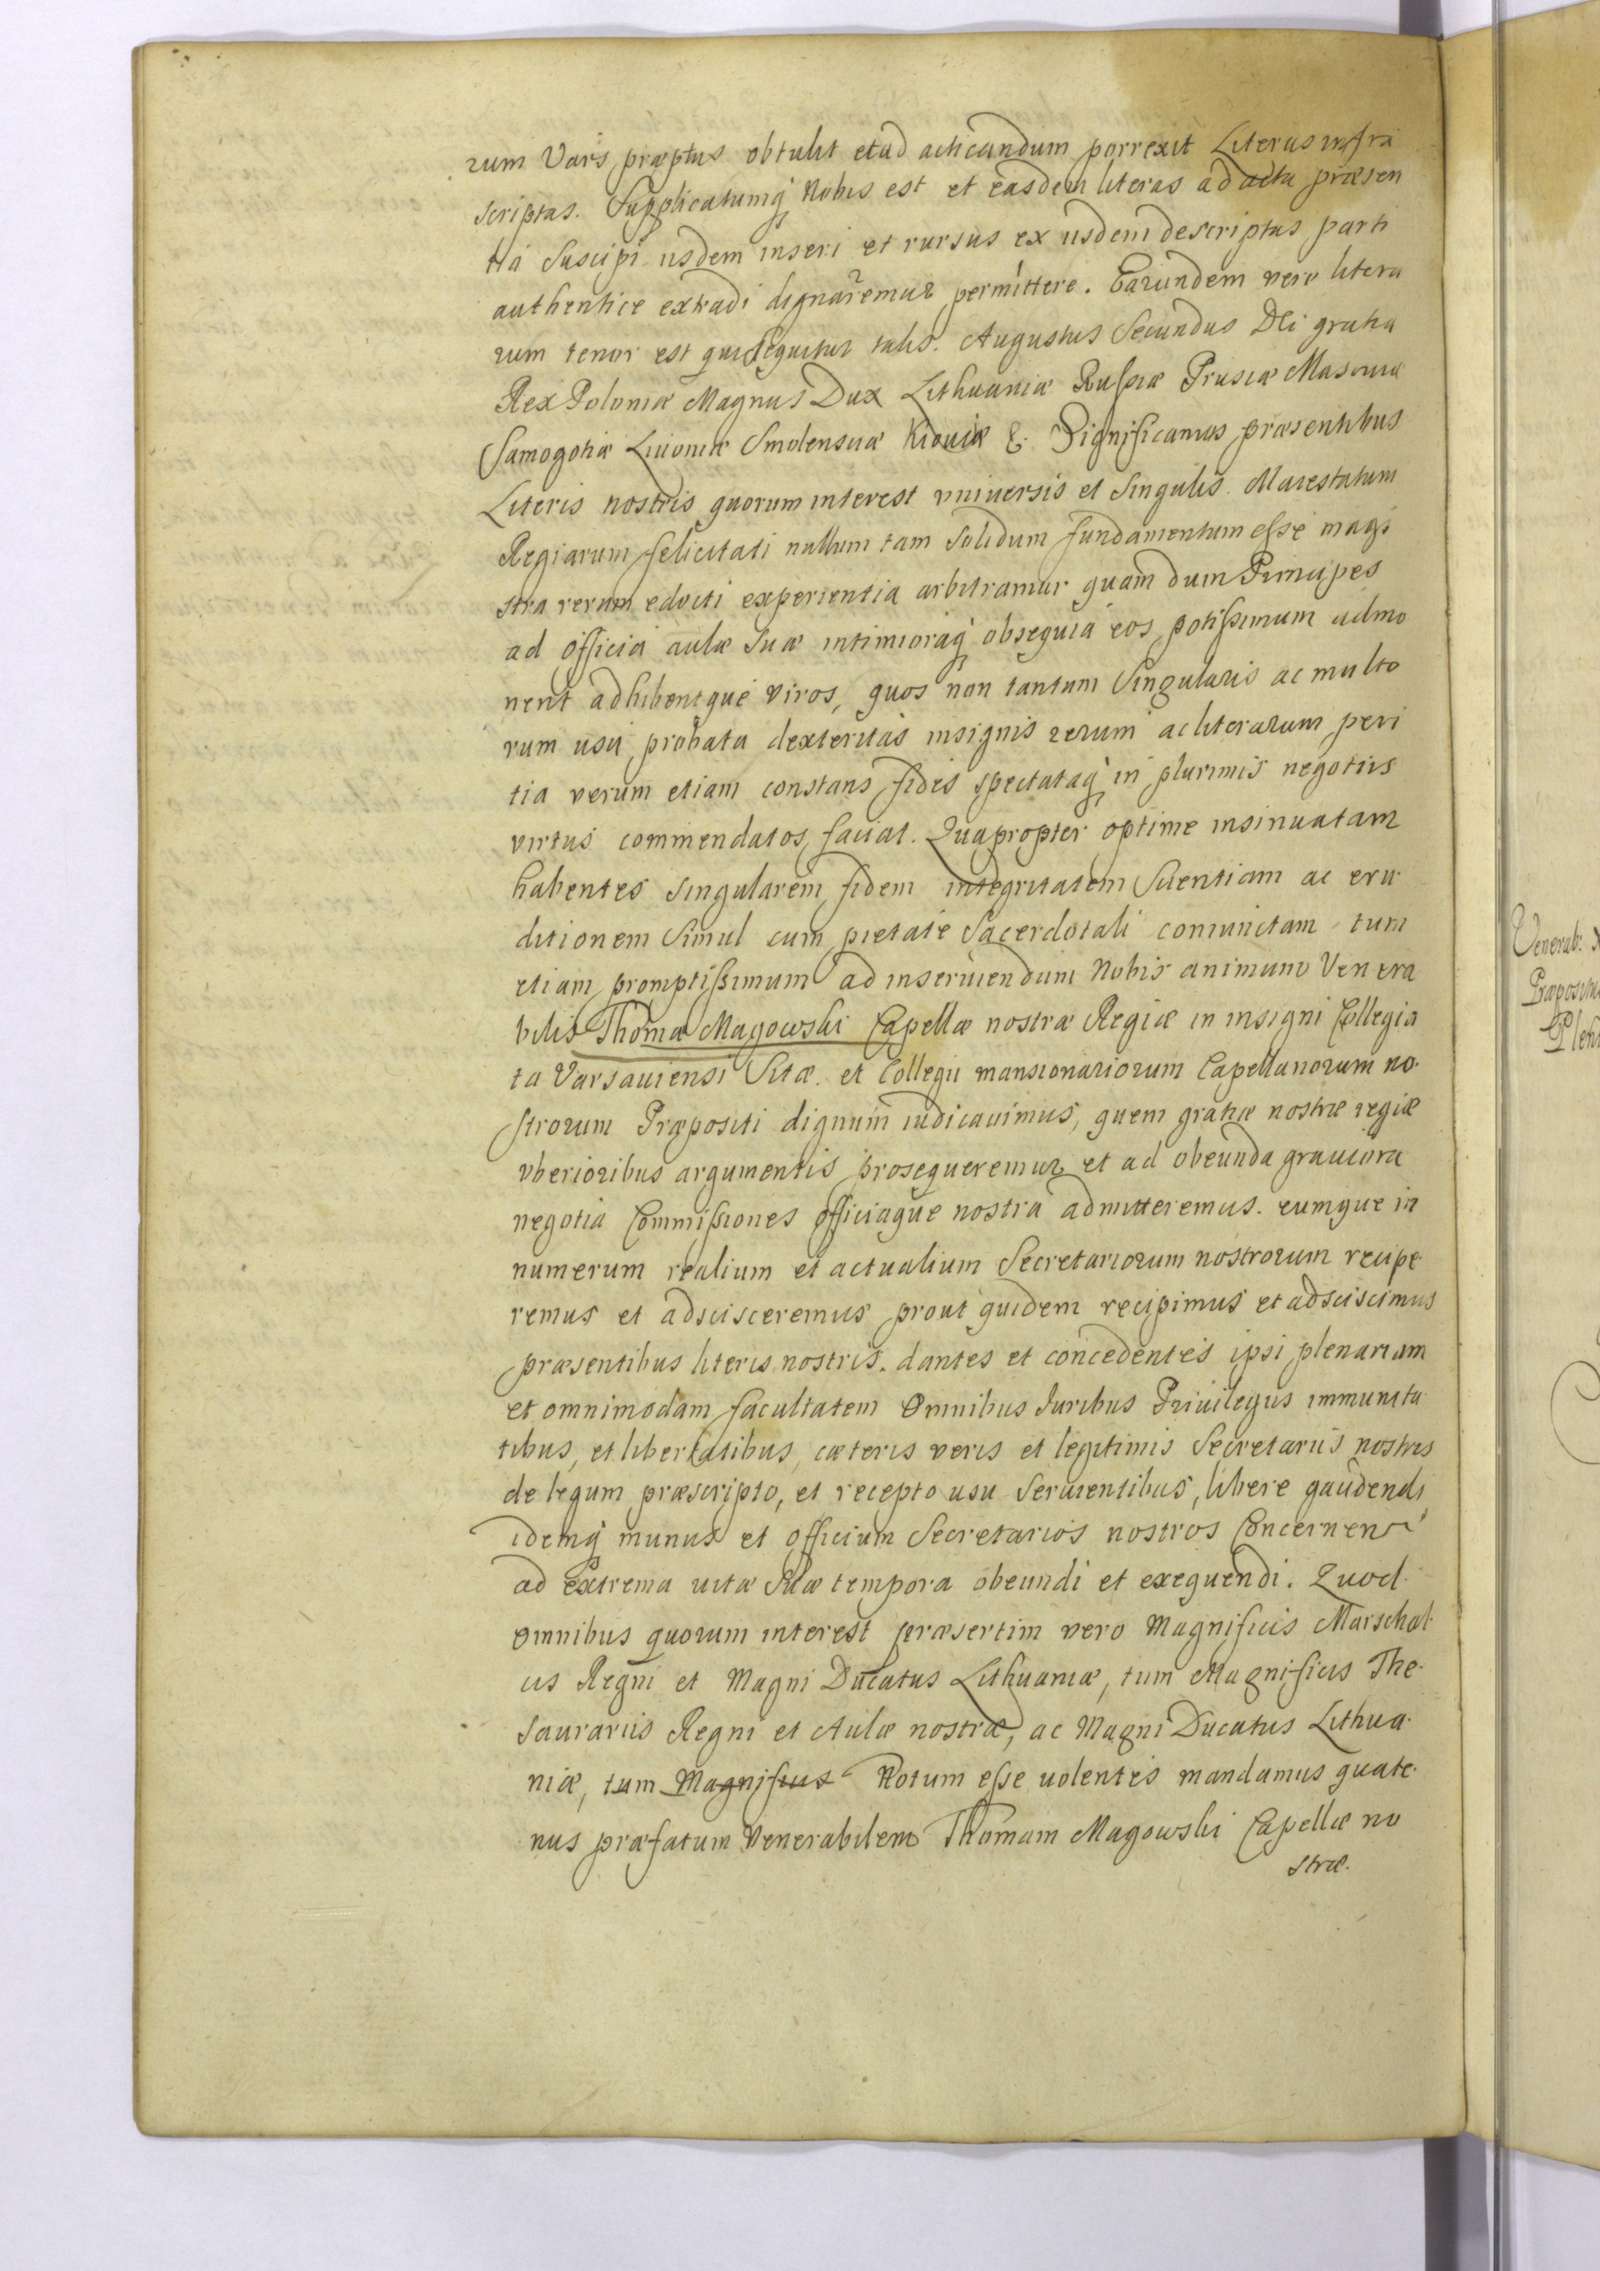 rum Vars præptus obtulit et ad acticandum porrexit Literas infra
scriptas. Supplicatumq́ Nobis est et easdem literas ad acta præsen
tia suscipi iisdem inseri et rursus ex iisdem descriptas parti
authentice extradi dignaremur permittere. Earundem vero litera
rum tenor est qui sequitur talis. Augustus Secundus Dei gratia
Rex Poloniæ Magnus Dux Lithuaniæ Russiæ Prusiæ Masoviæ
Samogotiæ Livoniæ Smolensciæ Kioviæ &. Significamus præsentibus
Literis nostris quorum interest vniversis et singulis. Maiestatum
Regiarum felicitati nullum tam solidum fundamentum esse magi
stra rerum edocti experientia arbitramur quam dum Principes
ad officia aulæ suæ intimioraq́ obsequia eos potissimum admo
nent adhibentque viros, quos non tantum singularis ac multo
rum usu probata dexteritas insignis rerum ac literarum peri
tia verum etiam constans fides spectataq́ in plurimis negotiis
virtus commendatos faciat. Quapropter optime insinuatam
habentes singularem fidem integritatem scientiam ac eru
ditionem simul cum pietate sacerdotali coniunctam tum
etiam promptissimum ad inserviendum Nobis animum Venera
bilis Thomæ Magowski Capellæ nostræ Regiæ in insigni Collegia
ta Varsaviensi sitæ. et Collegii mansionariorum Capellanorum no.
strorum Præpositi dignum iudicavimus, quem gratiæ nostræ regiæ
vberioribus argumentis prosequeremur et ad obeunda graviora
negotia Commissiones officiaque nostra admitteremus. eumque in
numerum realium et actualium Secretariorum nostrorum recipe
remus et adscisceremus prout quidem recipimus et adsciscimus
præsentibus literis nostris. dantes et concedentes ipsi plenariam
et omnimodam facultatem omnibus Juribus Privilegiis immunita
tibus, et libertatibus, cæteris veris et legitimis Secretariis nostris
de legum præscripto, et recepto usu servientibus, libere gaudendi
idemq́ munus et officium Secretarios nostros Concernens
ad extrema vitæ suæ tempora obeundi et exequendi. Quod.
omnibus quorum interest præsertim vero Magnificis Marschal
cis Regni et Magni Ducatus Lithuaniæ, tum Magnificis The.
saurariis Regni et Aulæ nostræ, ac Magni Ducatus Lithua.
niæ, tum Magnificis Notum esse volentes mandamus quate.
nus præfatum Venerabilem Thomam Magowski Capellæ no
stræ.
Venerab:
Præpositu
Plen